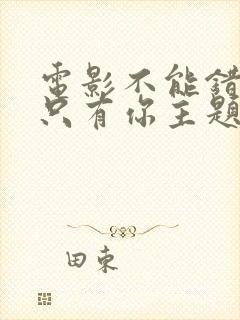 電影不能錯
只有你主題
田束